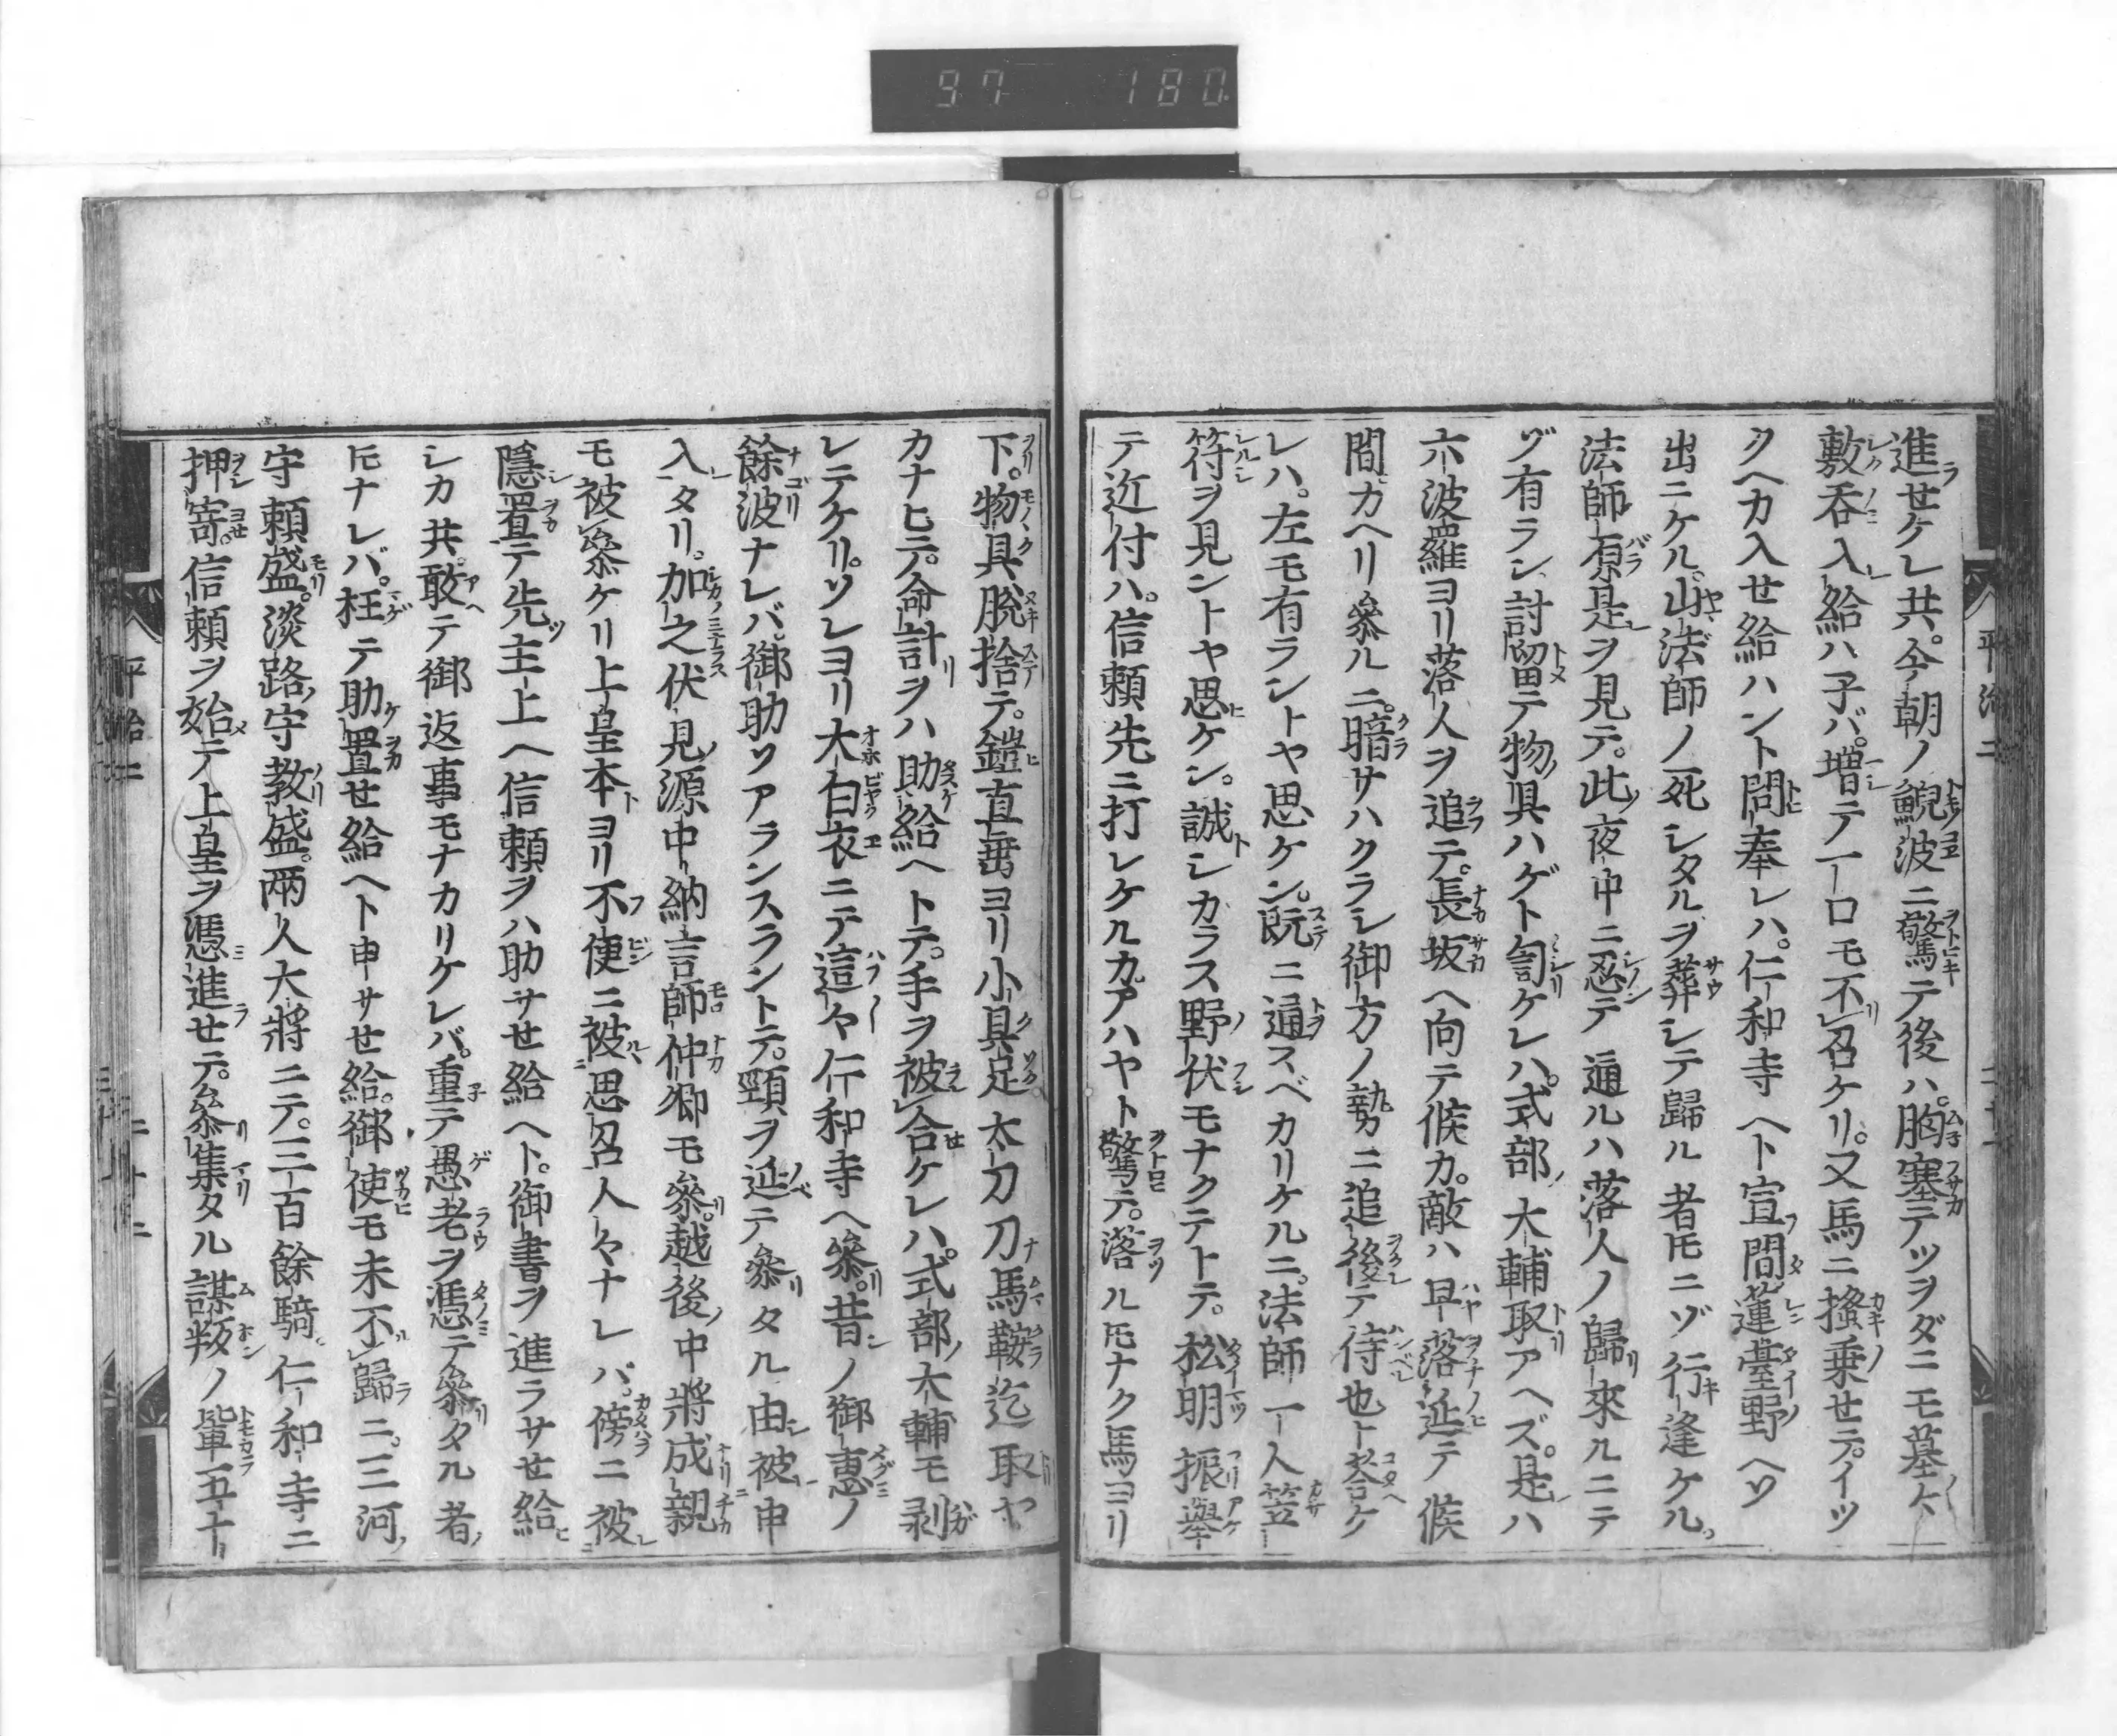 97 180
進セケレ共。今朝ノ鯢波ニ驚テ後ハ。胸塞テツヲダニモ墓々
敷呑入給ハ子バ。増テ一口モ不召ケリ。又馬ニ掻乗セテ。イツ
クヘカ入セ給ハント問奉レハ。仁和寺ヘト宣間。蓮臺野ヘソ
出ニケル。山法師ノ死シタルヲ葬シテ歸ル者𪜈ニゾ行逢ケル。
法師原是ヲ見テ。此夜中ニ忍テ通ルハ落人ノ歸來ルニテ
ゾ有ラン討留テ物具ハゲト訇ケレハ。式部大輔取アヘズ。是ハ
六波羅ヨリ落人ヲ追テ。長坂ヘ向テ候カ。敵ハ早落延テ候
間カヘリ參ルニ。暗サハクラシ御方ノ勢ニ追後テ侍也ト荅ケ
レハ。左モ有ラントヤ思ケン。既ニ通スベカリケルニ。法師一人笠
符ヲ見ントヤ思ケン。誠シカラス野伏モナクテトテ。松明振舉
テ近付ハ。信頼先ニ打レケルカアハヤト驚テ。落ル𪜈ナク馬ヨリ
下。物具脱捨テ。鎧直垂ヨリ小具足太刀刀馬鞍迄取ヤ
カナヒテ。命計ヲハ助給ヘトテ。手ヲ被合ケレハ。式部大輔モ剥
レテケリ。ソレヨリ大白衣ニテ這々仁和寺ヘ參。昔ノ御惠ノ
餘波ナレバ。御助ソアランスラントテ。頸ヲ延テ參タル由被申
入タリ。加之伏見源中納言師仲卿モ參。越後中將成親
モ被參ケリ上皇本ヨリ不便ニ被思召人々ナレバ。傍ニ被
隱置テ先主上ヘ信頼ヲハ助サセ給ヘト。御書ヲ進ラサセ給
シカ共。敢テ御返事モナカリケレバ。重テ愚老ヲ憑テ參タル者
𪜈ナレバ。枉テ助置セ給ヘト申サセ給。御使モ未不歸ニ。三河
守頼盛。淡路守教盛。兩人大將ニテ。三百餘騎。仁和寺ニ
押寄。信頼ヲ始テ上皇ヲ憑進セテ。參集タル謀叛ノ輩五十
平治二
二十二